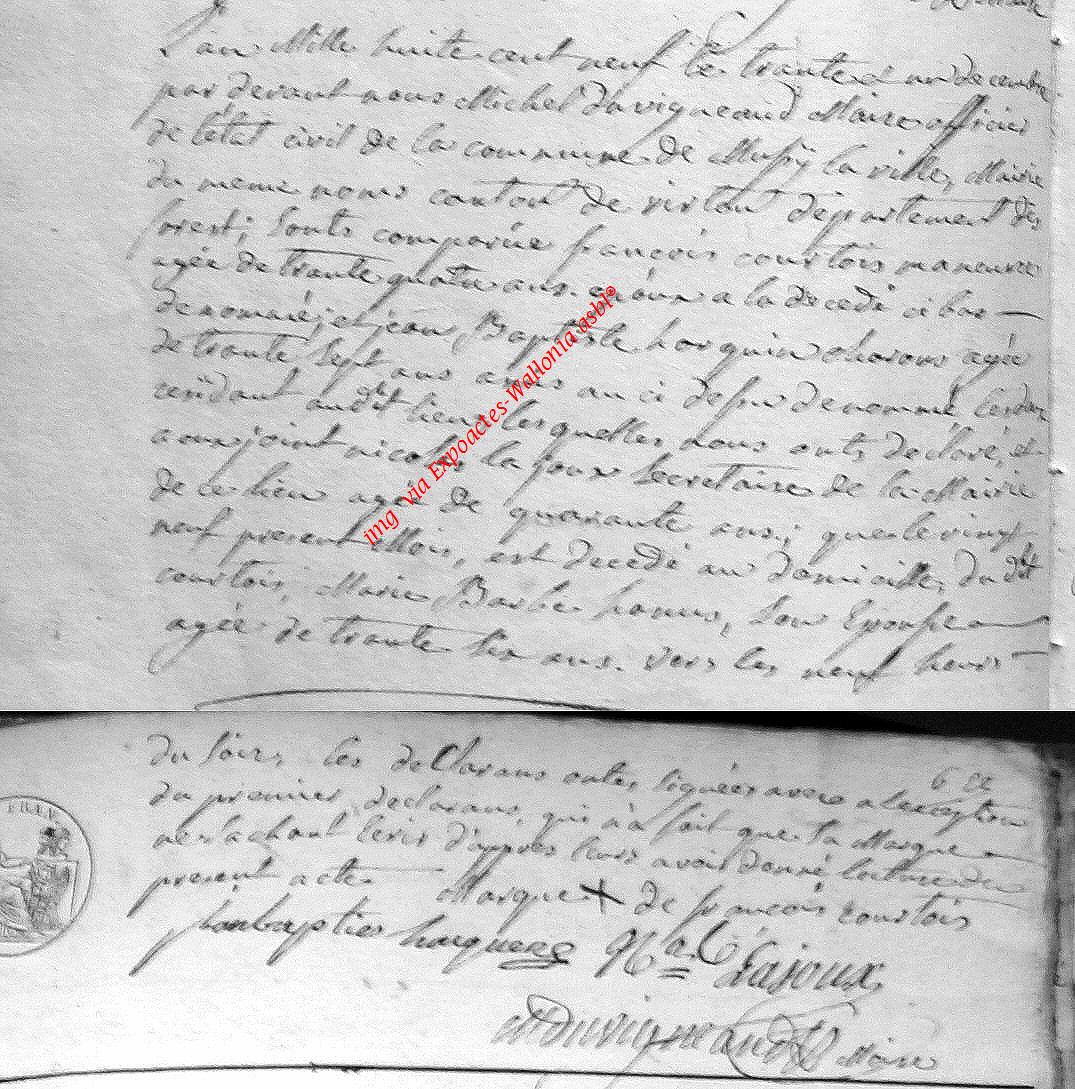 L'an Mille huite cent neuf le trante et un decembre
par devant nous Michel Duvigneaud Maire officier
de letat civil de la commune de Mussy la ville, Mairie
du meme noms canton de virton departement des
forest; sonts comparue françois courtois maneuvre
agée de trante quatre ans. a la décedé ci bas —
denomméé et jean Baptiste harquin charons agée
de trante sept ans amis au ci dessu denommé, les deux
résidant audit lieu, lesquelles nous onts déclaré, et
a conjoint nicolas la joux Secretaire de la Mairie
de ce lieu agée de quarante ans; que le vingt
neuf present Mois, est decedé au domicille, du dit
courtois, Marie Barbe hanus, son Epouse
agée de trante six ans. vers les neuf heurs —
du soir, les declarans onts, signées avec a lexception
du premier declarans, qui a fait que sa Marque
ne sachant écrir d'appres leurs avoir donné lecture du
present acte Marque X de françois courtois
jean baptiste harquene N. Lajoux
M Duvigneaud Maire
FREY
img via Expoactes-Wallonia asbl®